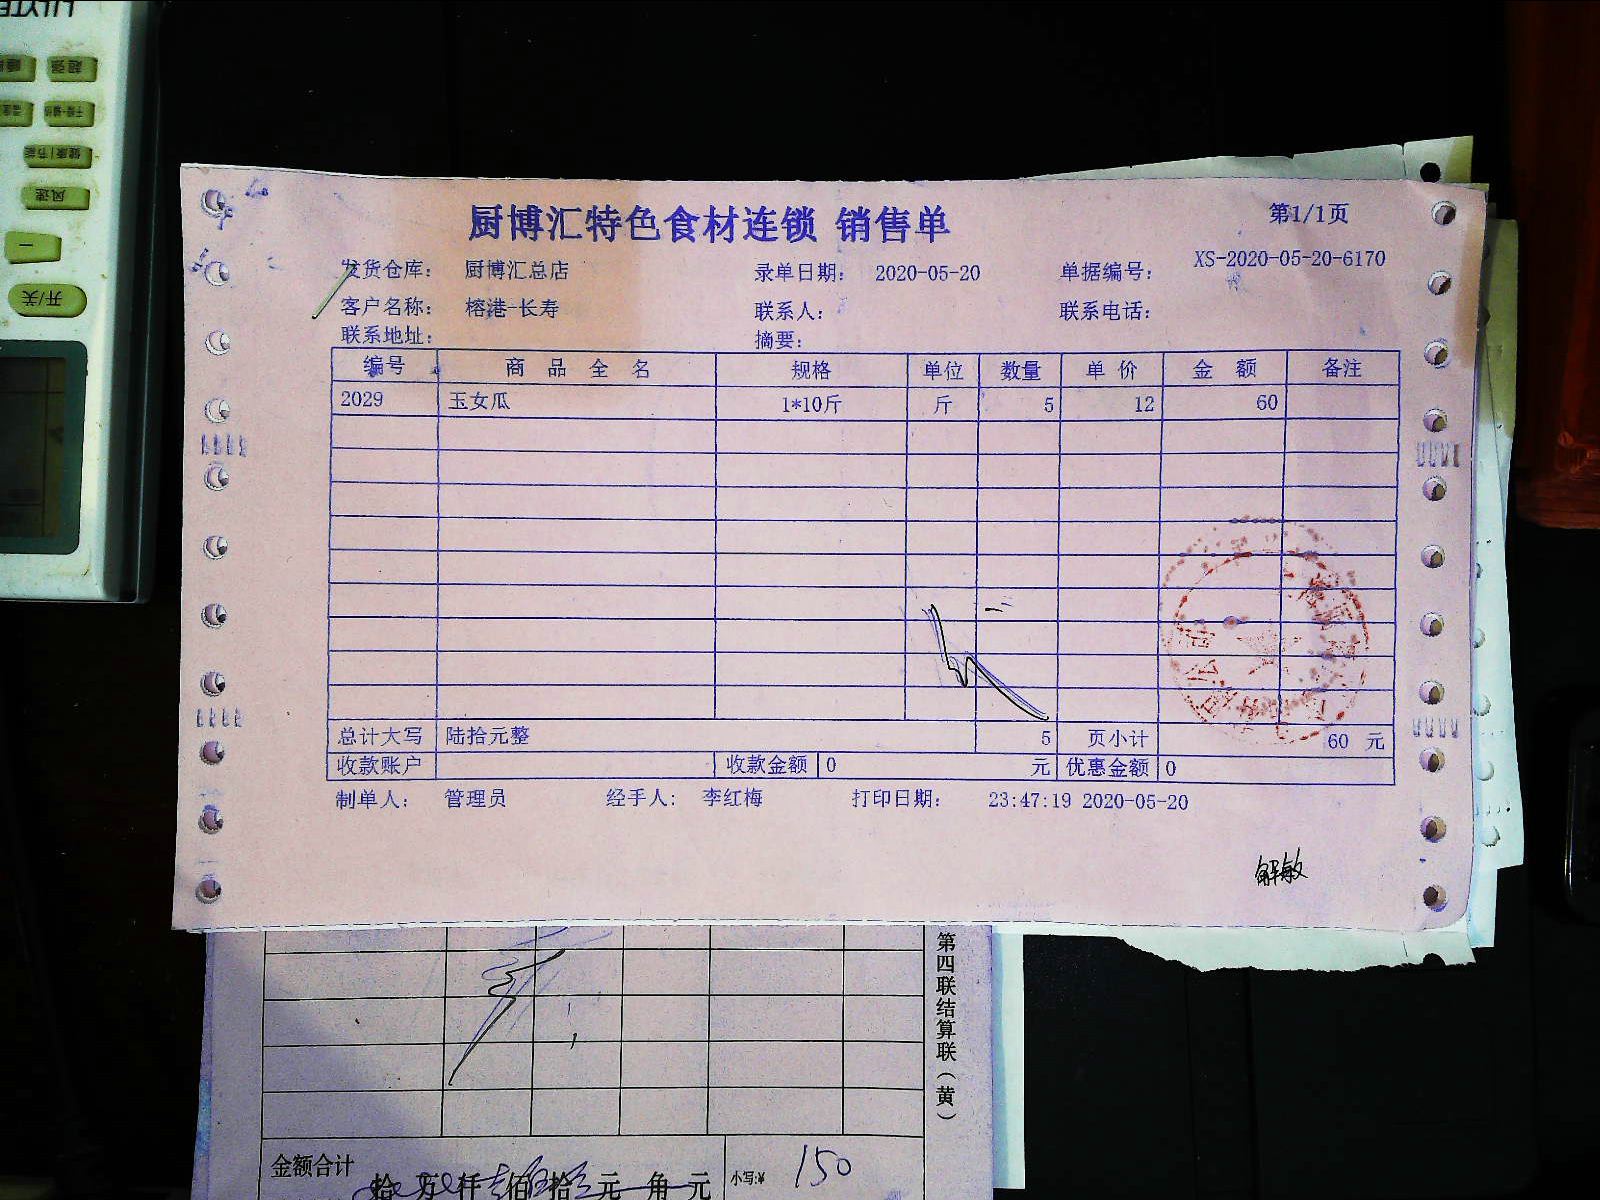 厨博汇特色食材连锁 销售单
第1/1页
发货仓库： 厨博汇总店 录单日期： 2020-05-20 单据编号： XS-2020-05-20-6170
客户名称： 榕港-长寿 联系人： 联系电话：
联系地址： 摘要：
编号 商品全名 规格 单位 数量 单价 金额 备注
2029 玉女瓜 1*10斤 斤 5 12 60
总计大写 陆拾元整 5 页小计 60 元
收款账户 收款金额 0 元 优惠金额 0
制单人： 管理员 经手人： 李红梅 打印日期： 23:47:19 2020-05-20
解敏
第四联结算联（黄）
金额合计 拾 万 仟 佰 拾 元 角 元 小写:¥ 150
超强
健康|节能
风速
开/关